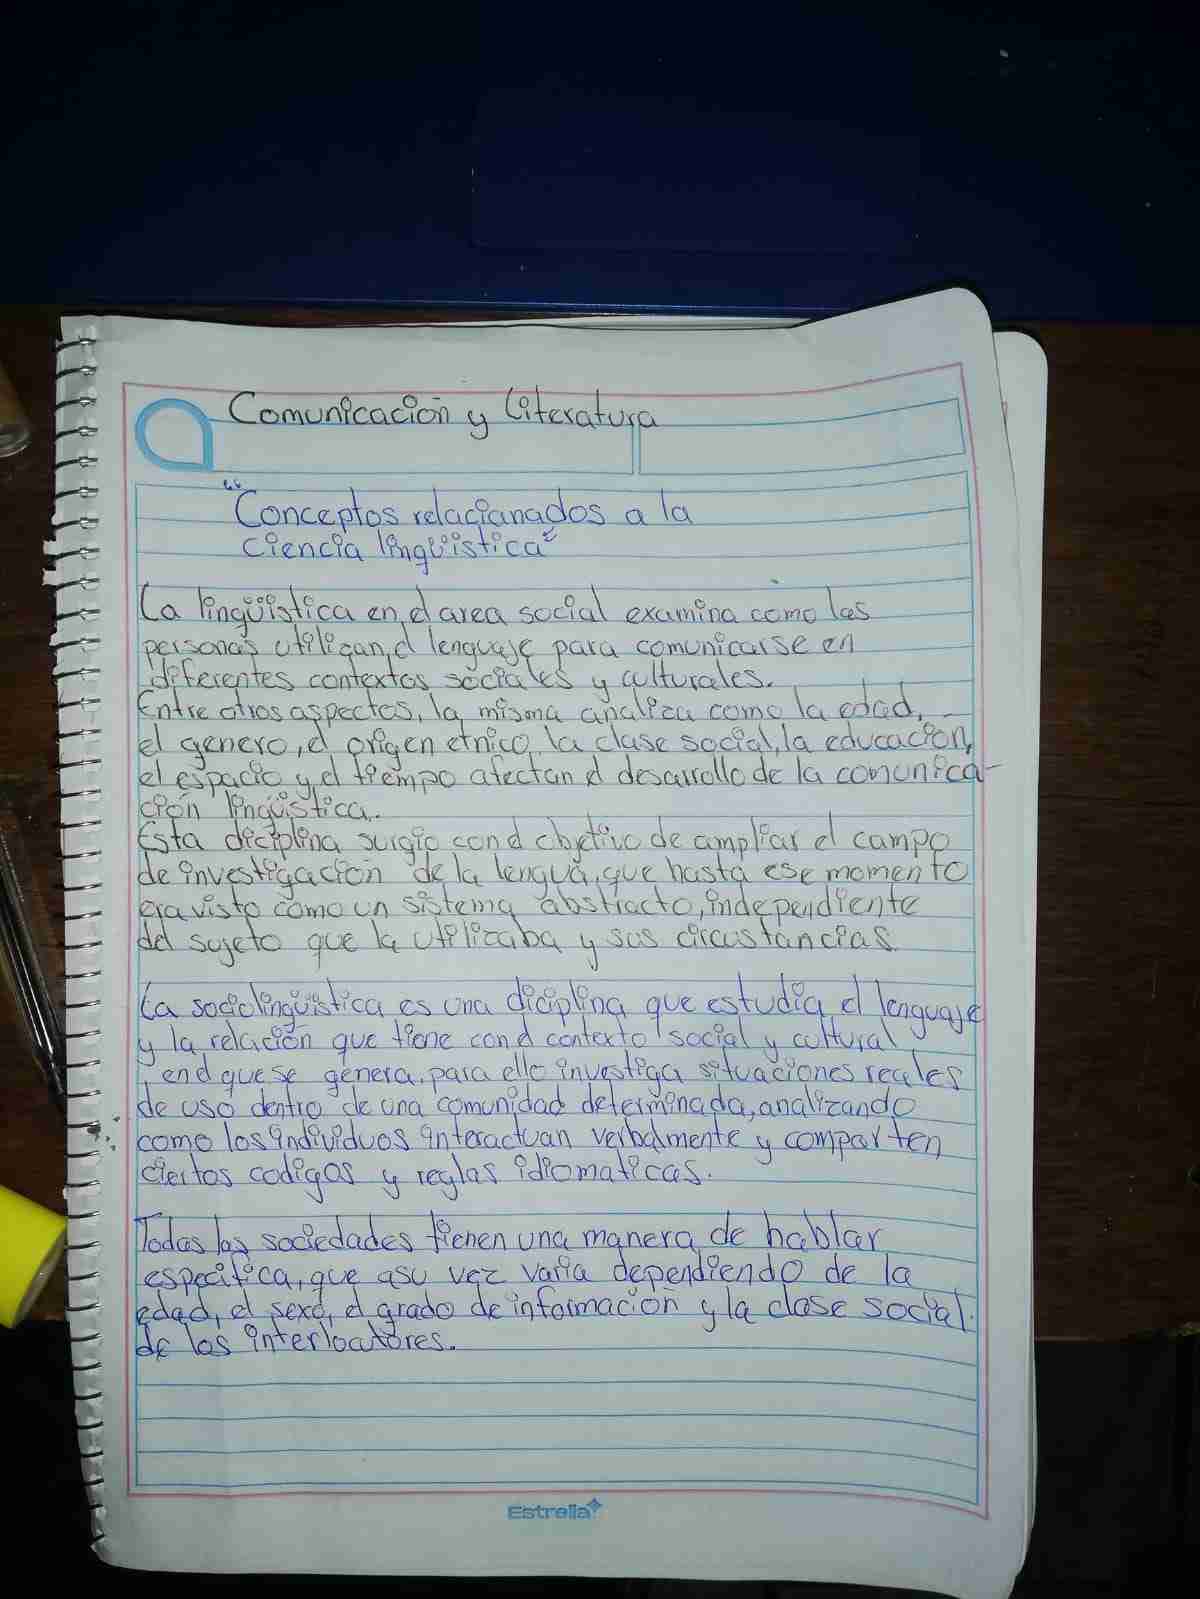 Comunicación y Literatura
"Conceptos relacianados a la
ciencia lingüistica"
La lingüistica en el area social examina como las
personas utilizan el lenguaje para comunicarse en
diferentes contextos sociales y culturales.
Entre otros aspectos, la misma analiza como la edad,
el genero, el origen etnico, la clase social, la educación,
el espacio y el tiempo afectan el desarrollo de la comunica-
ción lingüistica.
Esta diciplina surgio con el objetivo de ampliar el campo
de investigación de la lengua, que hasta ese momento
era visto como un sistema abstracto, independiente
del sujeto que la utilizaba y sus circustancias.
La sociolingüistica es una diciplina que estudia el lenguaje
y la relación que tiene con el contexto social y cultural
en el que se genera, para ello investiga situaciones reales
de uso dentro de una comunidad determinada, analizando
como los individuos interactuan verbalmente y comparten
ciertos codigos y reglas idiomaticas.
Todas las sociedades tienen una manera de hablar
especifica, que asu vez varia dependiendo de la
edad, el sexo, el grado de información y la clase social
de los interlocutores.
Estrella